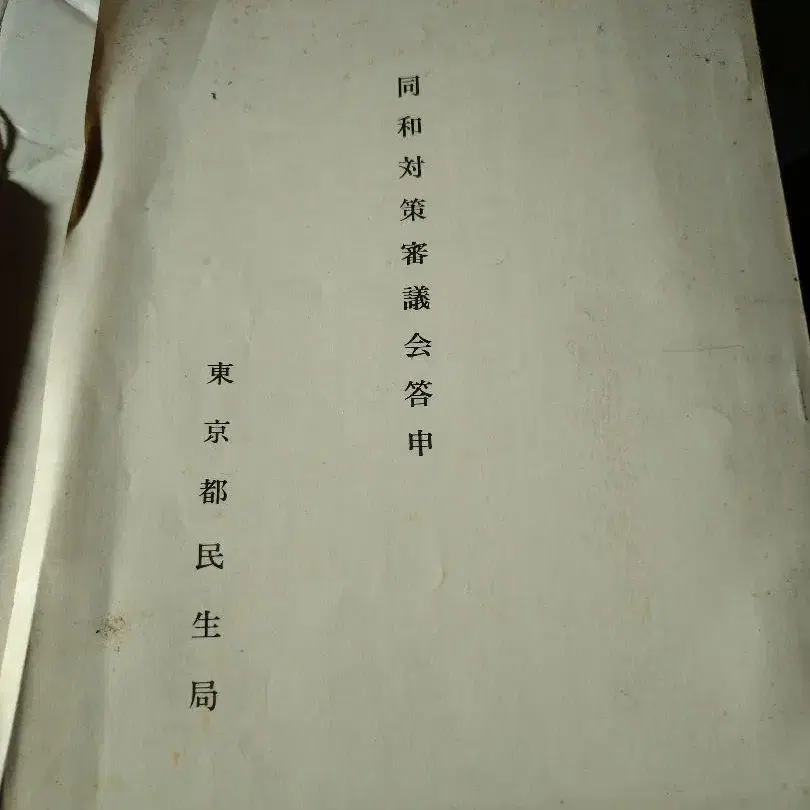 同和対策審議会答申
東京都民生局